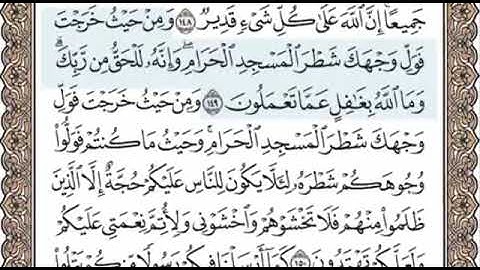 جَمِيعًا إِنَّ ٱللَّهَ عَلَىٰ كُلِّ شَىْءٍ قَدِيرٌ ١٤٨ وَمِنْ حَيْثُ خَرَجْتَ
فَوَلِّ وَجْهَكَ شَطْرَ ٱلْمَسْجِدِ ٱلْحَرَامِ ۖ وَإِنَّهُۥ لَلْحَقُّ مِن رَّبِّكَ ۗ
وَمَا ٱللَّهُ بِغَٰفِلٍ عَمَّا تَعْمَلُونَ ١٤٩ وَمِنْ حَيْثُ خَرَجْتَ فَوَلِّ
وَجْهَكَ شَطْرَ ٱلْمَسْجِدِ ٱلْحَرَامِ ۚ وَحَيْثُ مَا كُنتُمْ فَوَلُّوا۟
وُجُوهَكُمْ شَطْرَهُۥ لِئَلَّا يَكُونَ لِلنَّاسِ عَلَيْكُمْ حُجَّةٌ إِلَّا ٱلَّذِينَ
ظَلَمُوا۟ مِنْهُمْ فَلَا تَخْشَوْهُمْ وَٱخْشَوْنِى وَلِأُتِمَّ نِعْمَتِى عَلَيْكُمْ
وَلَعَلَّكُمْ تَهْتَدُونَ ١٥٠ كَمَآ أَرْسَلْنَا فِيكُمْ رَسُولًا مِّنكُمْ يَتْلُوا۟